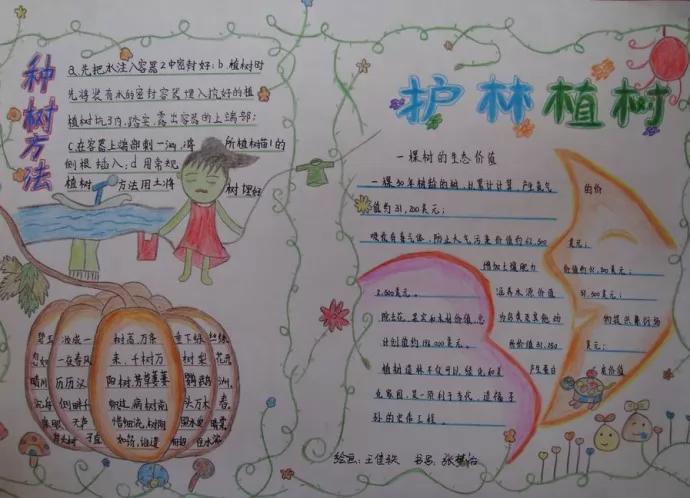 种树方法
a.先把水注入容器2中密封好；b.植树时
先将装有水的密封容器埋入挖好的植
树树坑3内,踏实,露出容器的上端部；
c.在容器上端部刺一洞,将 所植树苗1的
侧根插入；d.用常规
植树 方法用土将 树埋好
碧玉妆成一 树高,万条 垂下绿 丝绦
忽如一夜春风 来,千树万 树梨 花开
晴川历历汉 阳树,芳草萋萋 鹦鹉 洲
沉舟侧畔千 帆过,病树前 头万木 春
护林植树
一棵树的生态价值
一棵50年树龄的树,以累计计算,产生氧气 的价
值约31,200美元；
吸收有毒气体,防止大气污染价值约62,500 美元；
增加土壤肥力 价值约31,200美元；
涵养水源价值 37,500美元；
为鸟类及其他动 物提供繁衍场
所价值31,250 美元；
产生蛋白 质价值
2,500美元。
除去花、果实和木材价值,总
计创值约196,000美元。
植树造林不仅可以绿化和美
化家园,
孙的宏伟工程。
绘画:王佳轶 书写:张